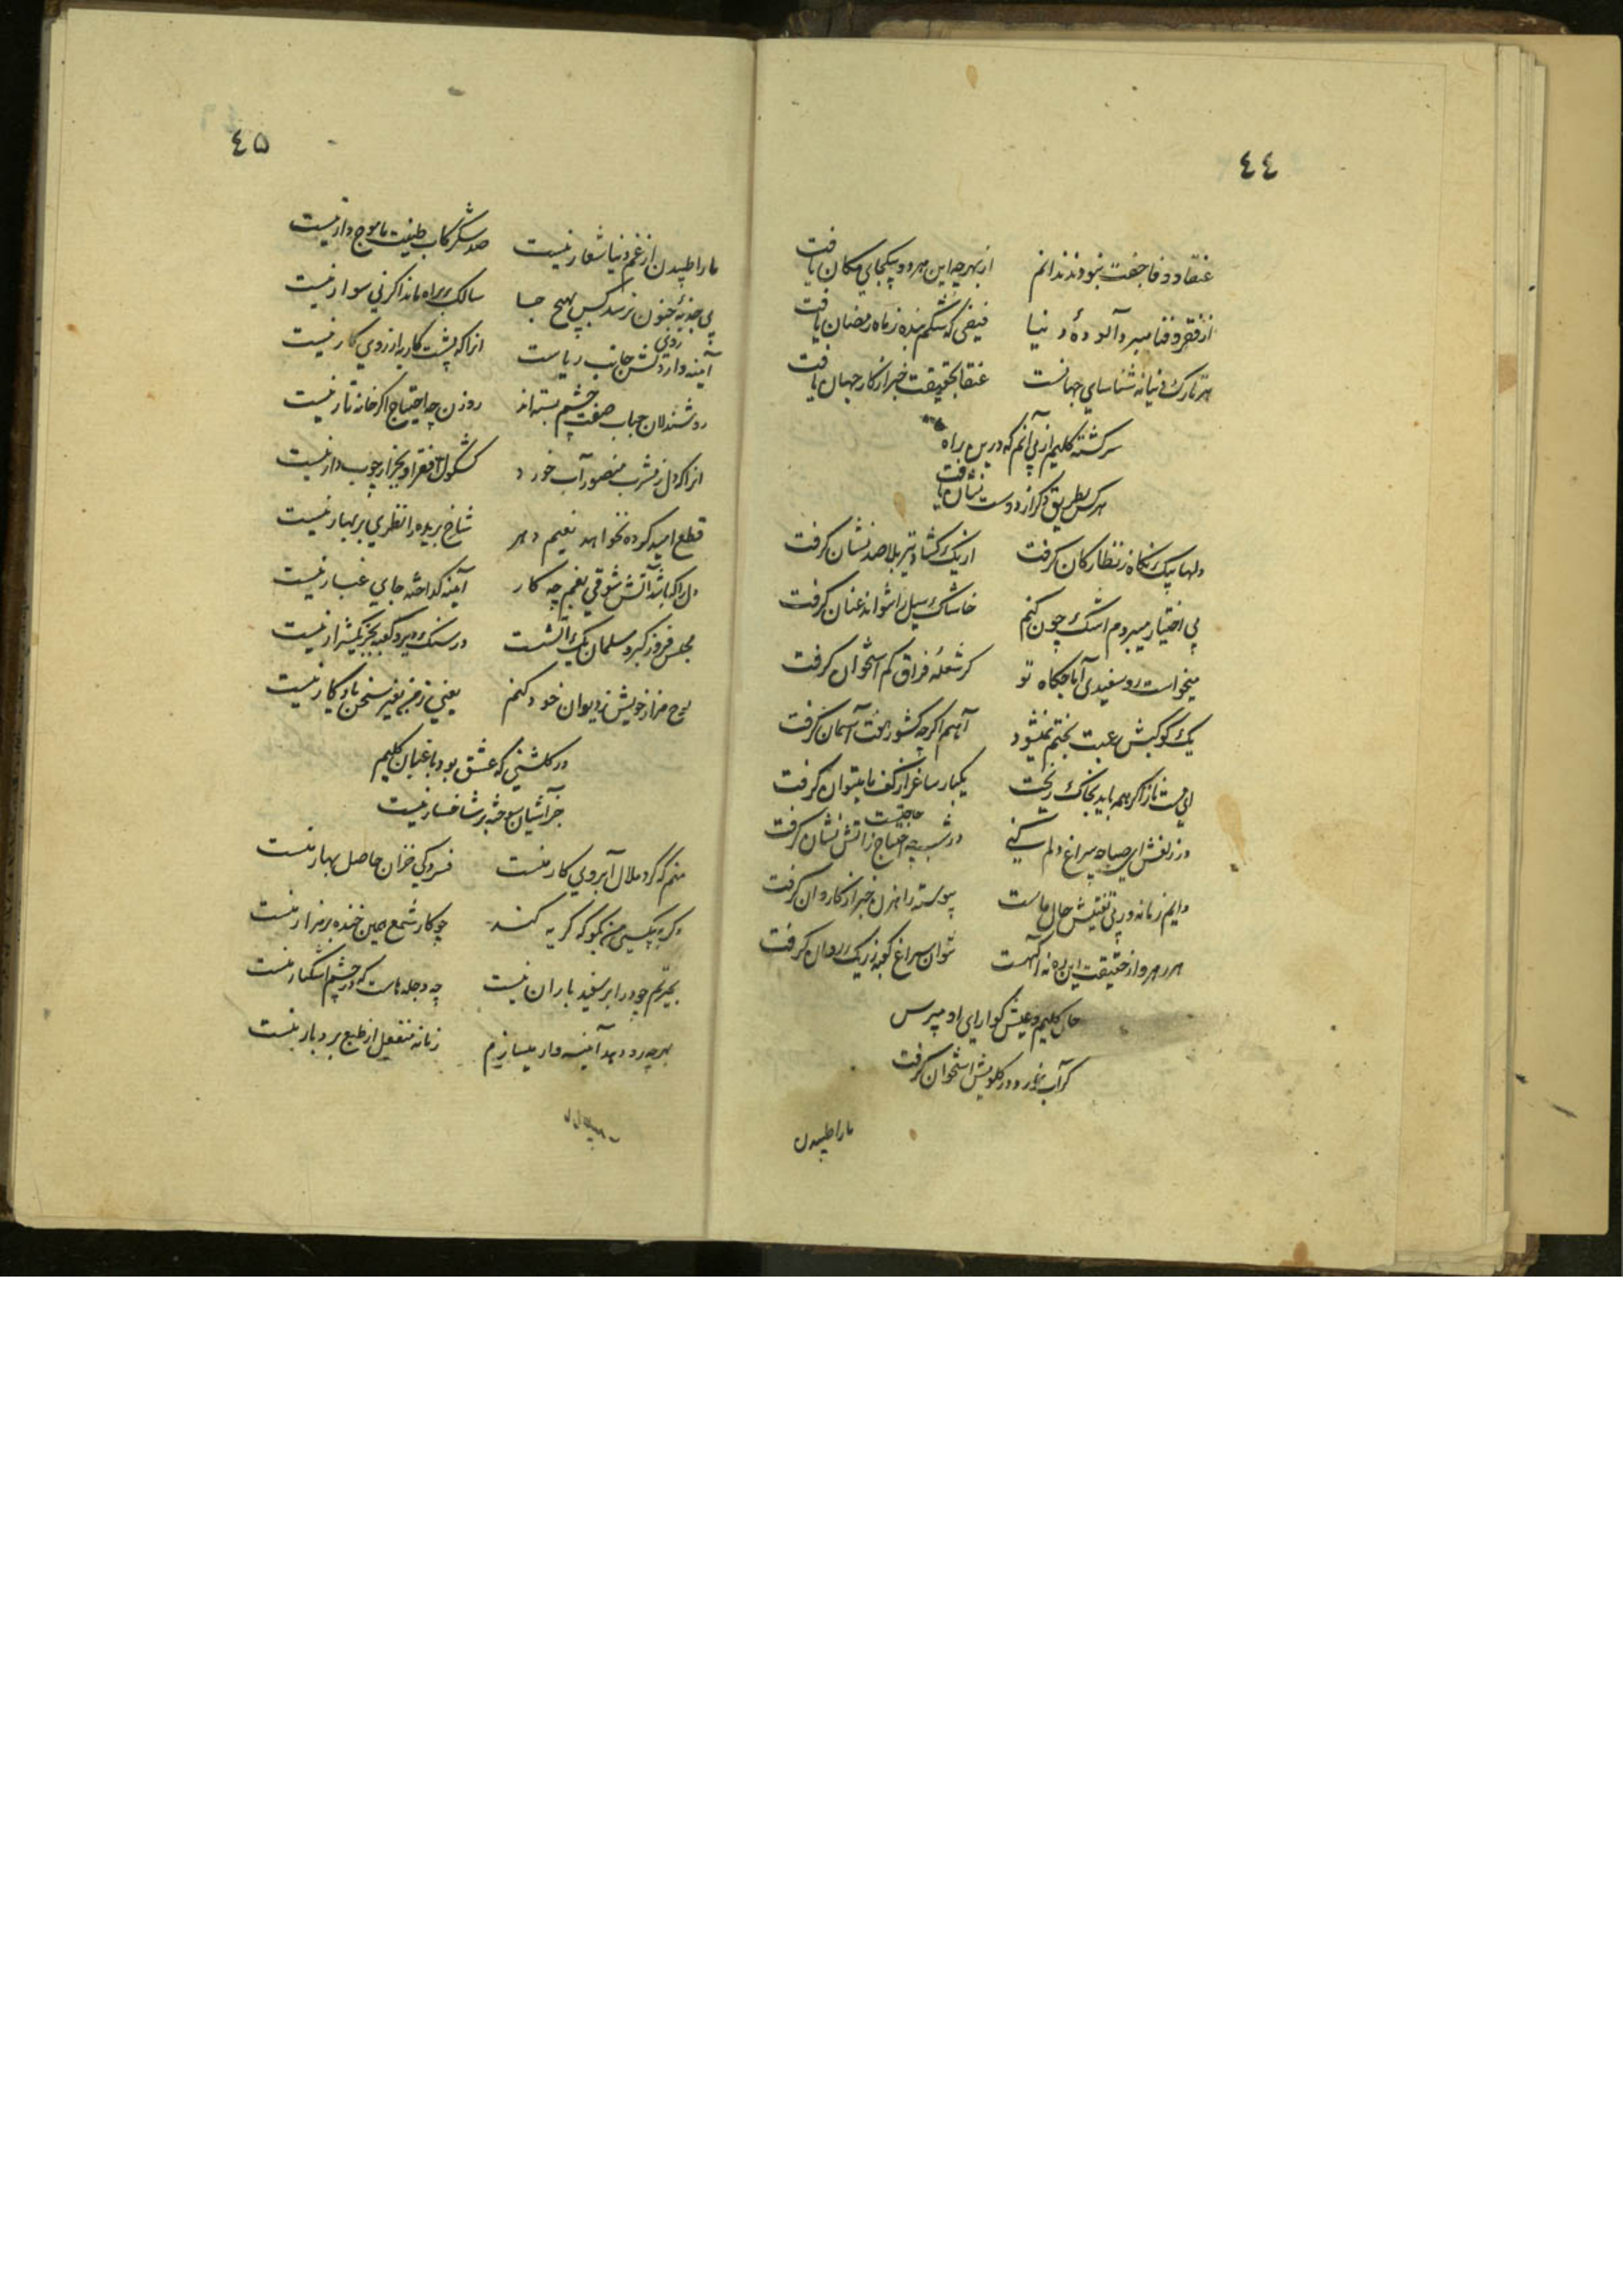 ٤٤
عنقا و وفا جفت نبودند ندانم از بهر چه این هر دو بیکجای مکان یافت
از فقر و فنا میبرد آلودهٔ دنیا فیضی که شکم بنده ز ماه رمضان یافت
هر تارک دنیا نه شناسای جهانست عنقا بحقیقت خبر از کار جهان یافت
سرگشته کلیم از پی آنم که درین راه
هر کس بطریق دگر از دوست نشان یافت
دلها بیک نگاه ز نظارگان گرفت از یک گشاد تیر بلا صد نشان گرفت
بی اختیار میبردم اشک چون کنم خاشاک سیل را نتواند عنان گرفت
میخواست رو سفیدی آماجگاه تو گر شعلهٔ فراق کم استخوان گرفت
یک کوکبش رعیت بختم نمیشود آهم اگرچه کشور هفت آسمان گرفت
ای مست ناز اگر همه باید بخاک ریخت یکبار ساغر از کف ما میتوان گرفت
در زلفش ای صبا چه سراغ دلم کنی در شب چه احتیاج ز آتش نشان گرفت
حاجتست
دایم زمانه در پی تفتیش حال ماست پیوسته راهزن خبر از کاروان گرفت
هر رهرو از حقیقت این ره نه آگهست نتوان سراغ کعبه ز ریگ روان گرفت
حال کلیم و عیش گوارای او مپرس
کز آب خورد در گلویش استخوان گرفت
ما را طپیدن
٤۵
ما را طپیدن از غم دنیا شعار نیست صد شکر کاب طینت ما موج دار نیست
بی جذبهٔ جنون نرسد کس بهیچ جا سالک براه ماند اگر نی سوار نیست
آیینه وار دلش جانب ریاست آنرا که پشت کار به از روی کار نیست
روی
روشندلان حباب صفت چشم بسته اند روزن چه احتیاج اگر خانه تار نیست
آنرا که دل ز مشرب منصور آب خورد کشکول فقر او بجز از چوب دار نیست
قطع امید کرده نخواهد نعیم دهر شاخ بریده را نظری بر بهار نیست
دل را که باشد آتش شوقی بغم چه کار آیینه گداخته جای غبار نیست
مجلس فروز گبر و مسلمان یک آتشست در سنگ دیر و کعبه بجز یک شرار نیست
لوح مزار خویش ز دیوان خود کنم یعنی ز من بغیر سخن یادگار نیست
در گلشنی که عشق بود باغبان کلیم
جز آشیان سوخته بر شاخسار نیست
منم که گرد ملال آبروی کار منست فسردگی خزان حاصل بهار منست
که بر بیکسی من بگو که گریه کند چو کار شمع همین خنده بر مزار منست
بحیرتم چو در ابر سفید باران نیست چه دجله هاست که در چشم اشکبار منست
بهر چه رو دهد آیینه وار میسازم زمانه منفعل از طبع بردبار منست